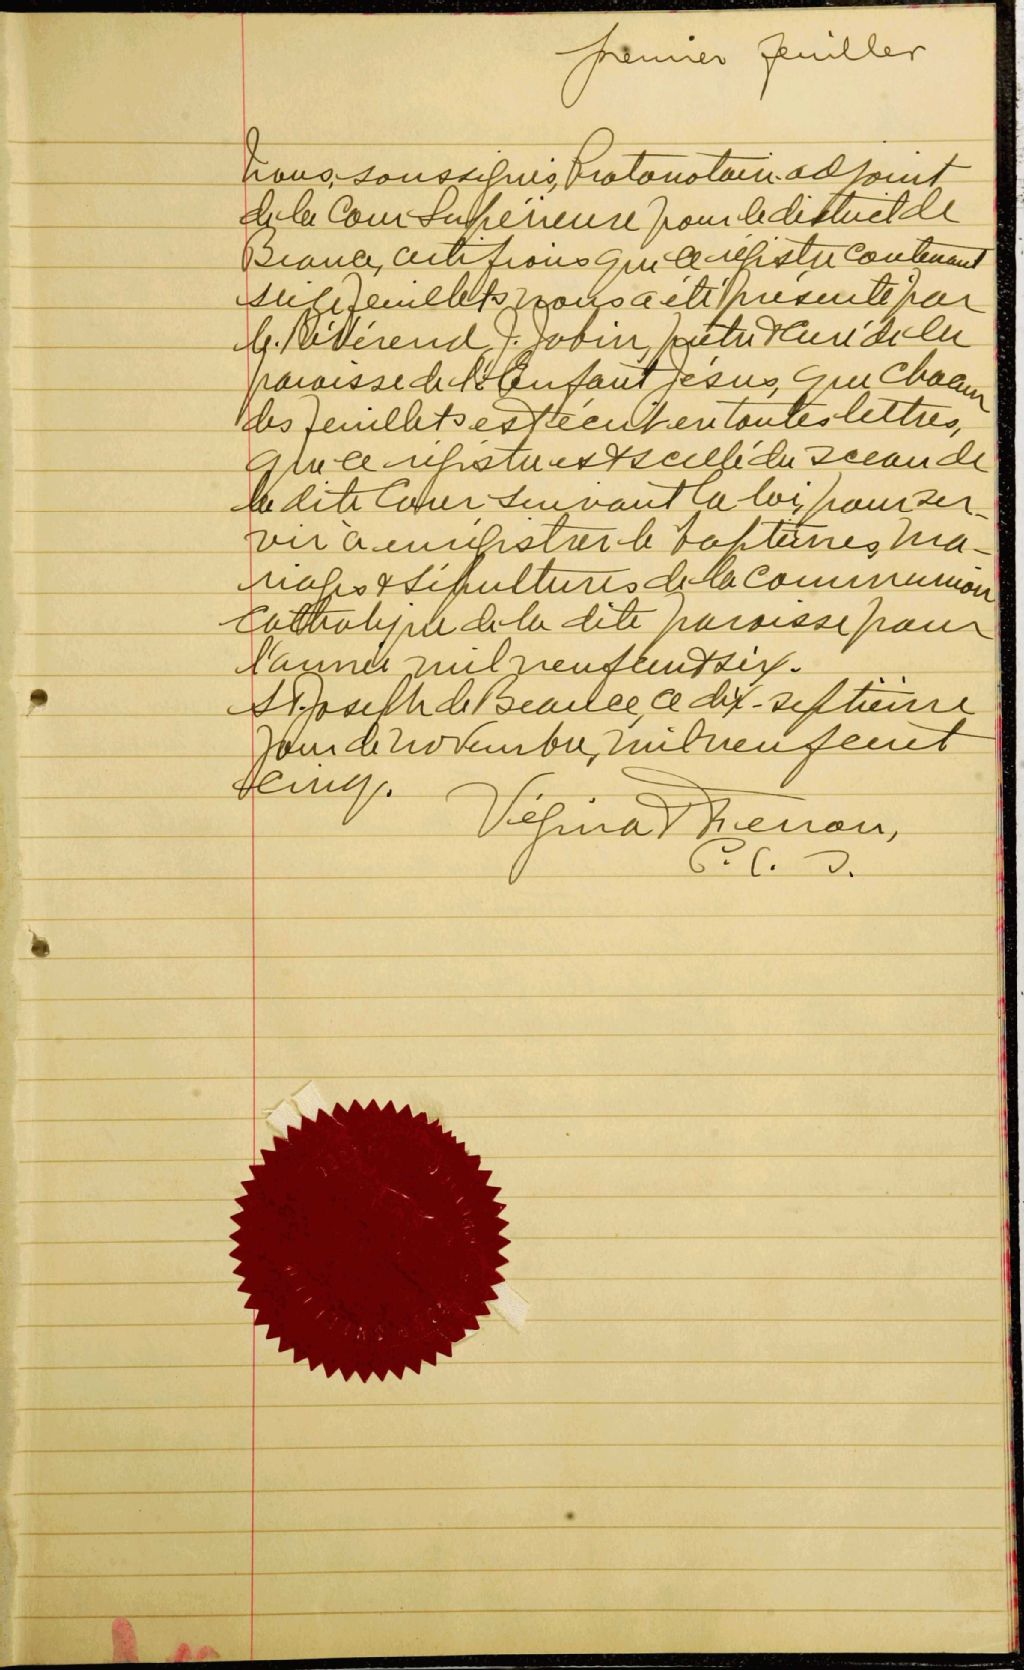 premier feuillet
Nous, soussignés, Protonotaire adjoint
de la Cour Supérieure pour le district de
Beauce, certifions que ce régistre contenant
seize feuillets nous a été présenté par
le Révérend J. Jobin, prêtre & curé de la
paroisse de l'Enfant Jésus, que chacun
des feuillets est écrit en toutes lettres,
que ce régistre est scellé du sceau de
la dite Cour suivant la loi, pour ser-
vir à enrégistrer le baptêmes, ma-
riages & sépultures de la communion
Catholique de la dite paroisse pour
l'année mil neuf cent six.
St Joseph de Beauce, ce dix-septième
jour de novembre, mil neuf cent
cinq.
Vézina & Theriau,
P. C. S.